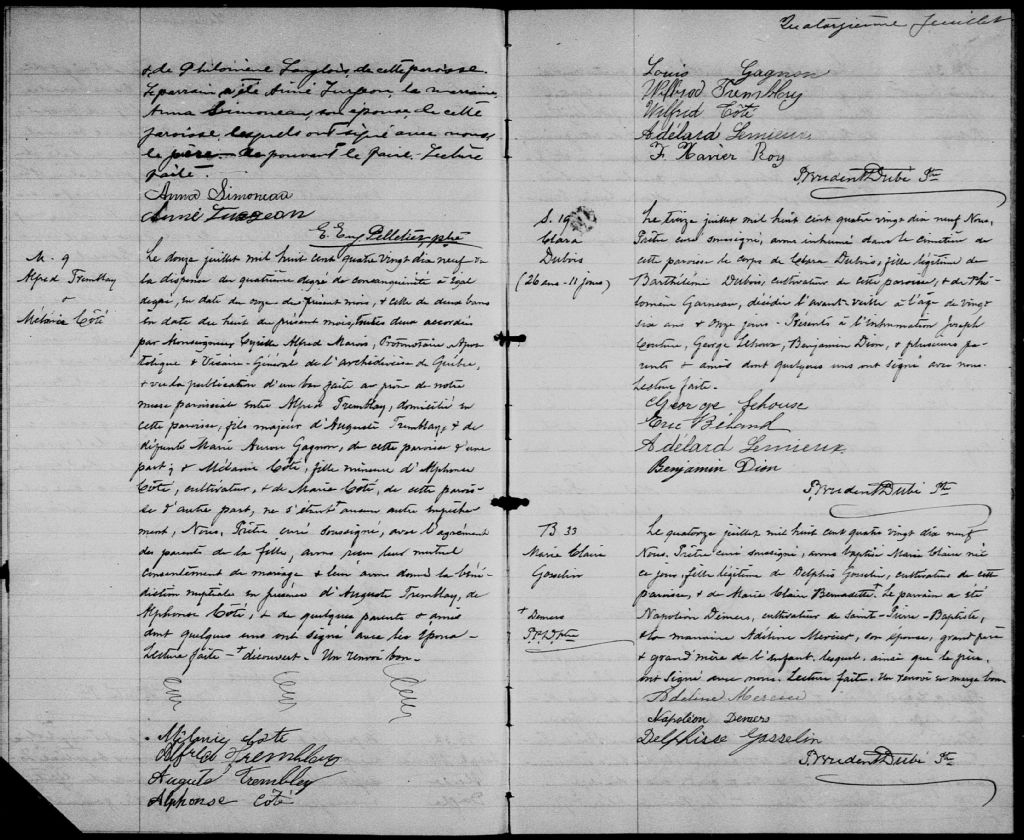 & de Philomène Langlois, de cette paroisse.
Le parrain a été Aimé Turgeon, la marraine
Anna Simoneau, son épouse, de cette
paroisse, lesquels ont signé avec nous,
le père ne pouvant le faire. Lecture
faite.
Anna Simoneau
Aimé Turgeon
E. Eug Pelletier ptre
M. 9
Alfred Tremblay
&
Mélanie Côté
Le douze juillet mil huit cent quatre vingt dix neuf vu
la dispense du quatrième degré de consanguinité à égal
degré, en date du onze du présent mois, & celle de deux bans
en date du huit du présent mois, toutes deux accordées
par Monseigneur Cyrille Alfred Marois, Protonotaire Apos-
tolique & Vicaire-Général de l'archidiocèse de Québec,
& vu la publication d'un ban faite au prône de notre
messe paroissiale entre Alfred Tremblay, domicilié en
cette paroisse, fils majeur d'Auguste Tremblay, & de
défunte Marie Gagnon, de cette paroisse d'une
part; & Mélanie Côté, fille mineure d'Alphonse
Côté, cultivateur, & de Marie Côté, de cette parois-
se d'autre part, ne s'étant aucun autre empêche-
ment, Nous, Prêtre curé soussigné, avec l'agrément
des parents de la fille, avons reçu leur mutuel
consentement de mariage & leur avons donné la béné-
diction nuptiale en présence d'Auguste Tremblay, de
Alphonse Côté, & de quelques parents & amis
dont quelques uns ont signé avec les époux-
Lecture faite - + découvert - Un renvoi bon -
Mélanie Côté
Alfred Trembley
Auguste Trembley
Alphonse Côté
Quatorzième feuillet
Louis Gagnon
Wilfrod Trembley
Wilfrid Côté
Adélard Lemieux
F. Xavier Roy
Prudent Dubé Ptre
S. 19
Clara
Dubois
(26 ans - 11 jours)
Le treize juillet mil huit cent quatre vingt dix neuf Nous,
Prêtre curé soussigné, avons inhumé dans le cimetière de
cette paroisse le corps de Clara Dubois, fille légitime de
Barthélémi Dubois, cultivateur de cette paroisse, & de Phi-
lomène Garneau, décédée l'avant-veille à l'âge de vingt
six ans & onze jours - Présents à l'inhumation Joseph
Couture, George Lehoux, Benjamin Dion, & plusieurs pa-
rents & amis dont quelques uns ont signé avec nous.
Lecture faite.
George Lehouse
Eric Beland
Adélard Lemieux
Benjamin Dion
Prudent Dubé Ptre
B 33
Marie Claire
Gosselin
+
Demers
P.D. Ptre
Le quatorze juillet mil huit cent quatre vingt dix neuf
Nous, Prêtre curé soussigné, avons baptisé Marie Claire née
ce jour, fille légitime de Delphis Gosselin, cultivateur de cette
paroisse, & de Marie Claire Bernadette +. Le parrain a été
Napoléon Demers, cultivateur de Sainte-
& la marraine Adéline Mercier, son épouse, grand père
& grand'mère de l'enfant, lesquels, ainsi que le père,
ont signé avec nous. Lecture faite. Un renvoi en marge bon
Adeline Mercier
Napoléon Demers
Delphisse Gosselin
Prudent Dubé Ptre